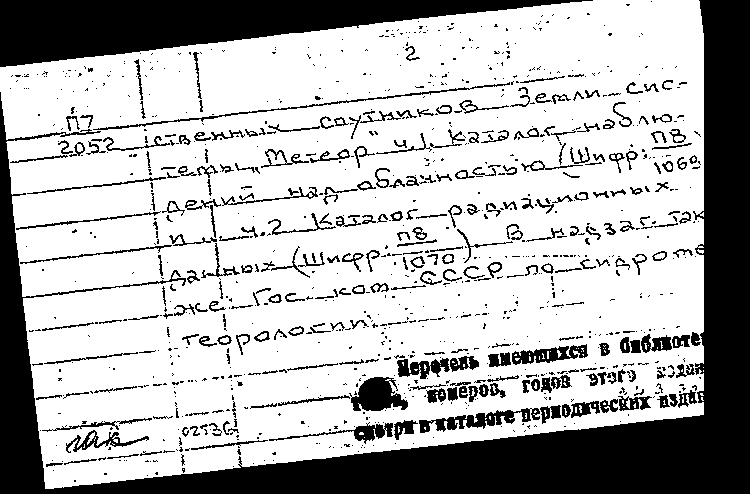 2
П7
2052
ственных спутников Земли сис-
темы „Метеор" ч.1. Каталог наблю-
дений над облачностью (Шифр: П8
1069
и ч.2 Каталог радиационных
данных (Шифр: П8
1070). В надзаг. так
же: Гос ком. СССР по гидроме
теорологии.
Перечень имеющихся в библиоте
номеров, годов этого издан
смотри в каталоге периодических издан
02536